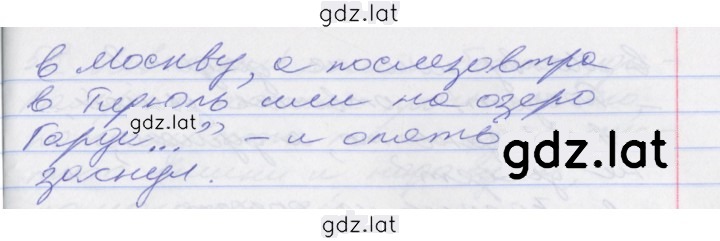 gdz.lat
в Москву, а послезавтра
в Тироль или на озеро
gdz.lat
Гарди..." – и опять
gdz.lat
заснул.
gdz.lat